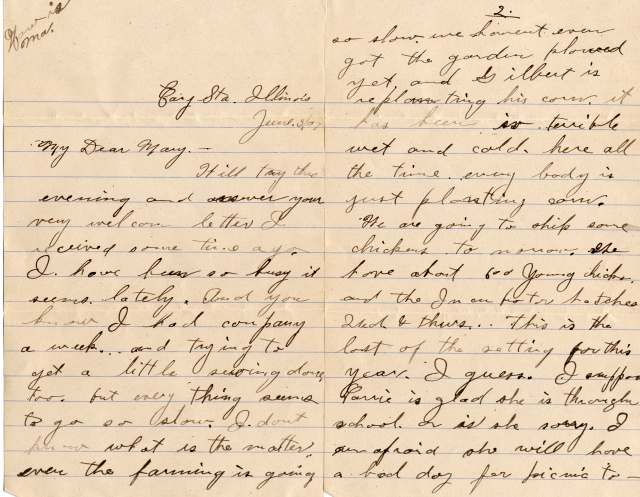 How is
Ma.
Cary Sta. Illinois
June.
My Dear Mary. —
Will try this
evening and answer your
very welcom letter I
received some time ago.
I have been so busy it
seems. lately. And you
know I had company
a week... and trying to
get a little sewing done
too. but every thing seems
to go so slow. I. dont
know what is the matter.
even the farming is going
2.
so slow we havent even
got the garden plowed
yet, and Gilbert is
replanting his corn. it
has been so terrible
wet and cold. here all
the time. every body is
just planting corn.
We are going to ship some
chickens to morrow. We
have about 600 Young chicks.
and the Incubator hatches
2nd & thurs... This is the
last of the setting for this
year. I guess. I suppose
Carrie is glad she is through
school. or is she sorry. I
am afraid she will have
a bad day for picnic to —